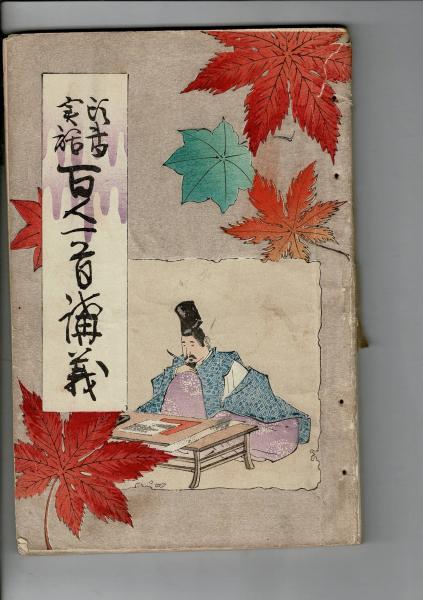 頭書
実話
百人一首講義